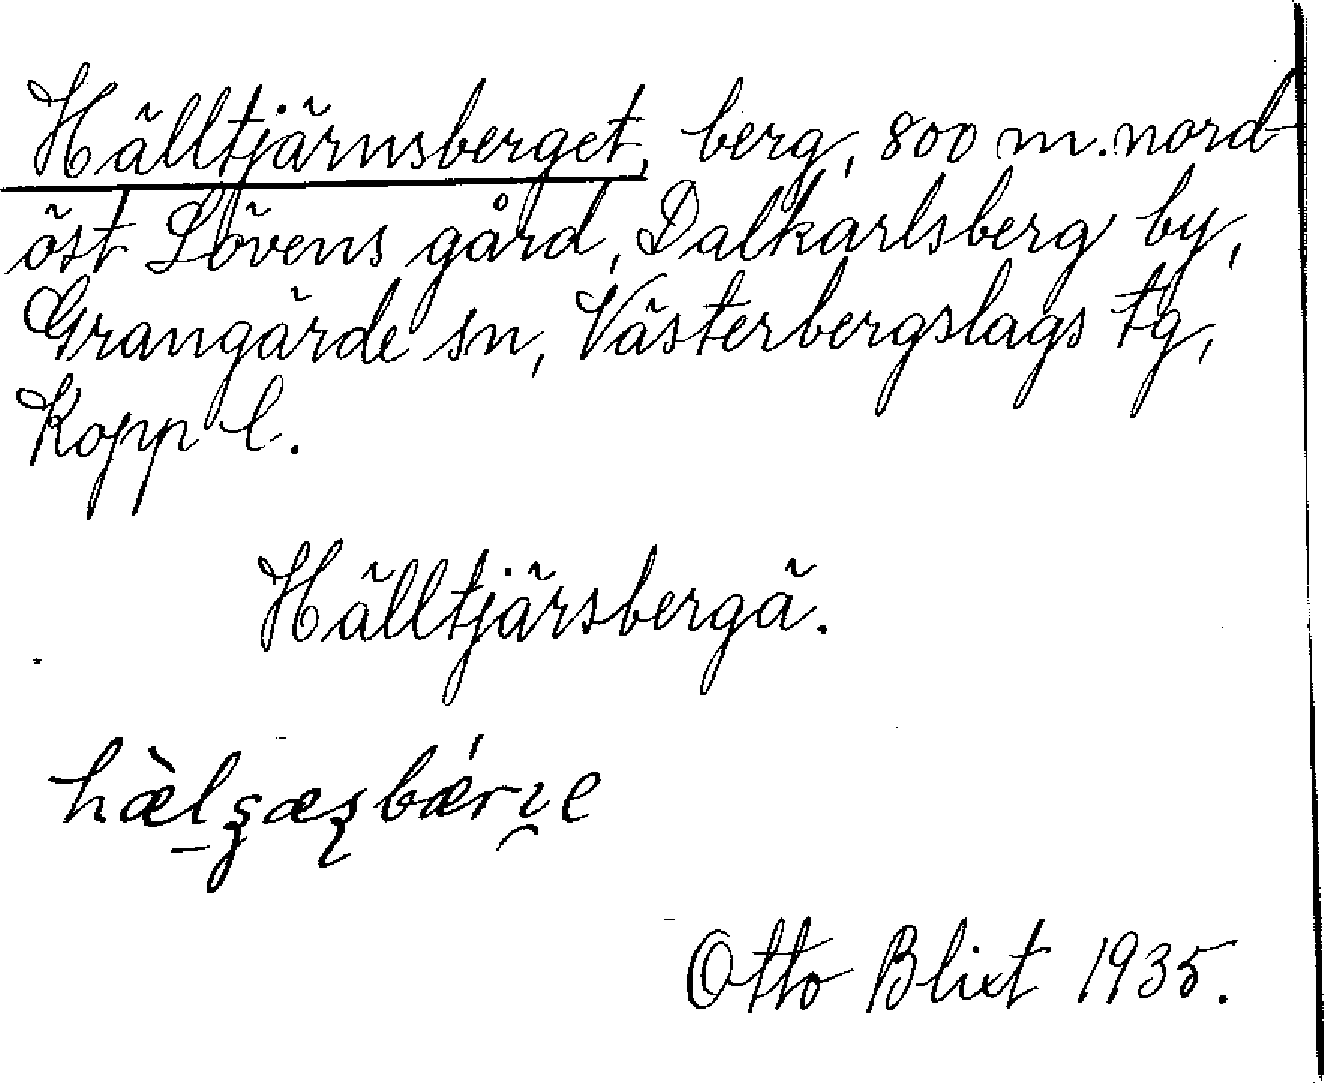 Hälltjärnsberget, berg, 800 m. nord
öst Lövens gård, Dalkarlsberg by,
Grangärde sn, Västerbergslags tg,
Kopp l.
Hälltjärsbergä.
Otto Blixt 1935.